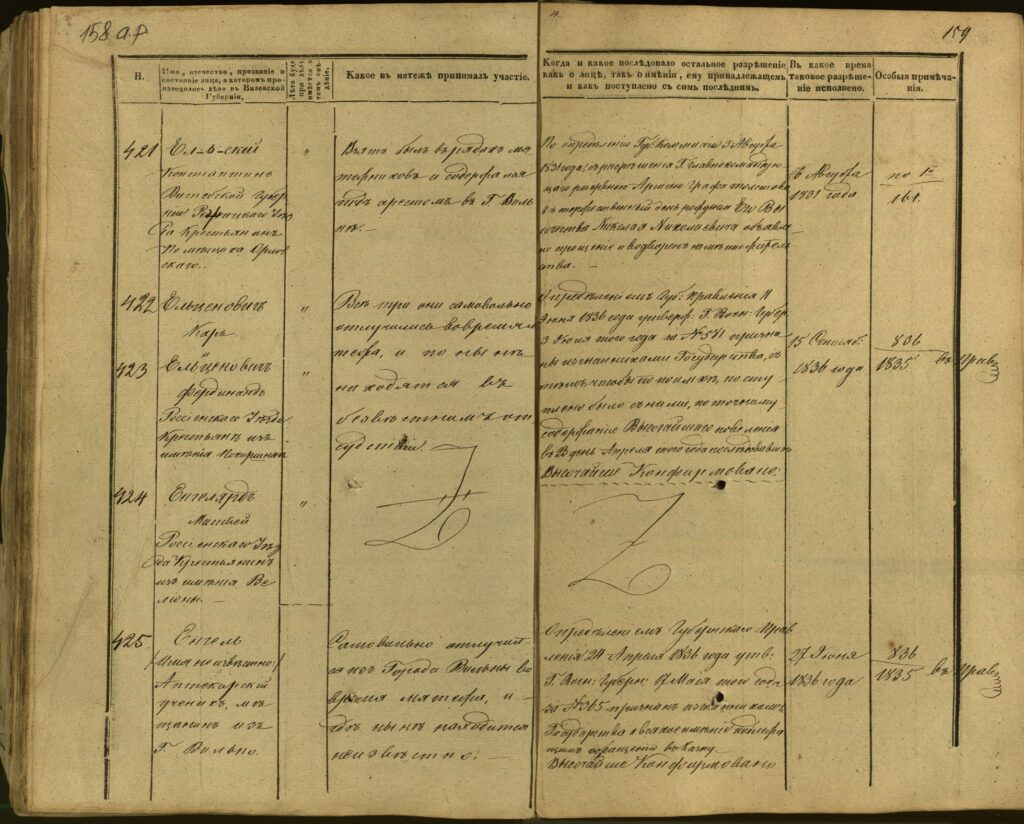 158 а.р
159
Н.
Имя, отечество, прозваніе и
состояніе лица, о которомъ про-
изводилось дѣло въ Виленской
Губерніи.
Какое въ мятежѣ принималъ участіе.
Когда и какое послѣдовало остальное разрѣшеніе
какъ о лицѣ, такъ о имѣніи, ему принадлежащемъ
и какъ поступлено съ симъ послѣднимъ.
Въ какое время
таковое разрѣше-
ніе исполнено.
Особыя примѣча-
нія.
421
Ел-ь-ский
Константинъ
Витебской Губер
нии Рѣжицкаго Уѣз
да Крестьянинъ
Помѣщика Орлов
скаго.
"
Взятъ былъ въ рядахъ мя
тежниковъ и содержался
подъ арестомъ въ Г. Виль
нѣ.
По опредѣленію Губ: Коммисіи 3 Августа
1831 года, съ разрѣшенія Г. Главнокомандую
щаго резервною Арміею Графа Толстова
въ торжественный день рожденія Его Вы
сочества Николая Николаевича объявле
но прощеніе и водворенъ на мѣсто житель
ства.
7 Августа
1831 года
по 1й
161.
422
Ельценовичъ
Карь
"
Всѣ три они самовольно
отлучились во время мя
тежа, и по нынѣ
находятся въ
безвѣстномъ от
судствіи.
Опредѣленіемъ Губ: Правленія 11
Іюня 1836 года утверж: Г. Воен: Губер:
3 Іюля того года за № 571 призна
ны изгнанниками Государства, съ
тѣмъ чтобы по поимкѣ, посту
плено было съ ними, по точному
содержанію Высочайшаго повеленія
въ 23 день Апреля того года послѣдовавшаго
Высочайше Конфирмовано.
15 Сентяб:
1836 года
836
1835 въ Прав
423
Ельценовичъ
Фердинандъ
Россіенскаго Уѣзда
Крестьяне изъ
имѣнія
"
424
Енгелярдъ
Матвей
Россіенскаго Уѣз
да Крестьянинъ
изъ имѣнія Ве
люны.
"
425
Енгель
/Имя неизвѣстно:/
Аптекарскій
ученикъ, мѣ
щанинъ изъ
Г. Вильно.
Самовольно отлучил-
ся изъ Города Вильны во
время мятежа, и
гдѣ нынѣ находится
неизвѣстно.
Опредѣленіемъ Губернскаго Прав
ленія 24 Апреля 1836 года утв:
Г. Воен: Губерн: 17 Маія того года
за № 365 признанъ изгнанникомъ
Государства а всякое имѣніе подлежа
щимъ обращенію въ казну.
Высочайше Конфирмовано
27 Іюня
1836 года
836
1835 въ Прав